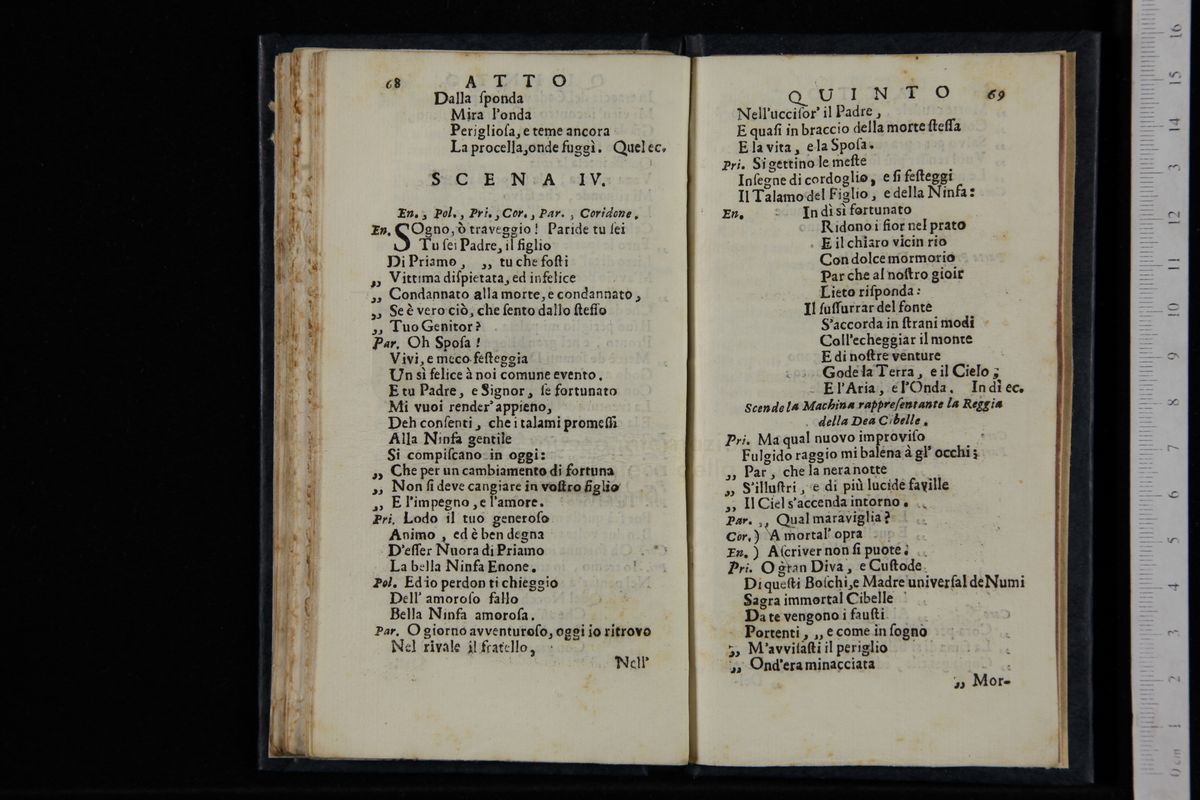 68 ATTO
Dalla ſponda
Mira l'onda
Periglioſa, e teme ancora
La procella, onde fuggì. Quel ec.
SCENA IV.
En., Pol., Pri., Cor., Par., Coridone.
En. SOgno, ò traveggio! Paride tu ſei
Tu ſei Padre, il figlio
Di Priamo, ,, tu che foſti
,, Vittima diſpietata, ed infelice
,, Condannato alla morte, e condannato,
,, Se è vero ciò, che ſento dallo ſteſſo
,, Tuo Genitor?
Par. Oh Spoſa!
Vivi, e meco feſteggia
Un sì felice à noi comune evento.
E tu Padre, e Signor, ſe fortunato
Mi vuoi render' appieno,
Deh conſenti, che i talami promeſſi
Alla Ninfa gentile
Si compiſcano in oggi:
,, Che per un cambiamento di fortuna
,, Non ſi deve cangiare in voſtro figlio
,, E l'impegno, e l'amore.
Pri. Lodo il tuo generoſo
Animo, ed è ben degna
D'eſſer Nuora di Priamo
La bella Ninfa Enone.
Pol. Ed io perdon ti chieggio
Dell' amoroſo fallo
Bella Ninfa amoroſa.
Par. O giorno avventuroſo, oggi io ritrovo
Nel rivale il fratello,
Nell'
QUINTO 69
Nell'ucciſor' il Padre,
E quaſi in braccio della morte ſteſſa
E la vita, e la Spoſa.
Pri. Si gettino le meſte
Inſegne di cordoglio, e ſi feſteggi
Il Talamo del Figlio, e della Ninfa:
En. In dì sì fortunato
Ridono i fior nel prato
E il chiaro vicin rio
Con dolce mormorio
Par che al noſtro gioir
Lieto riſponda:
Il ſuſſurrar del fonte
S'accorda in ſtrani modi
Coll'echeggiar il monte
E di noſtre venture
Gode la Terra, e il Cielo;
E l'Aria, e l'Onda. In dì ec.
Scende la Machina rappreſentante la Reggia
della Dea Cibelle.
Pri. Ma qual nuovo improviſo
Fulgido raggio mi balena à gl' occhi;
,, Par, che la nera notte
,, S'illuſtri, e di più lucide faville
,, Il Ciel s'accenda intorno.
Par. ,, Qual maraviglia?
Cor. ) A mortal' opra
En. ) Aſcriver non ſi puote.
Pri. O gran Diva, e Cuſtode
Di queſti Boſchi, e Madre univerſal de Numi
Sagra immortal Cibelle
Da te vengono i fauſti
Portenti, ,, e come in ſogno
,, M'avviſaſti il periglio
,, Ond'era minacciata
,, Mor-
16
15
14
13
12
11
10
9
8
7
6
5
4
3
2
1
0 cm